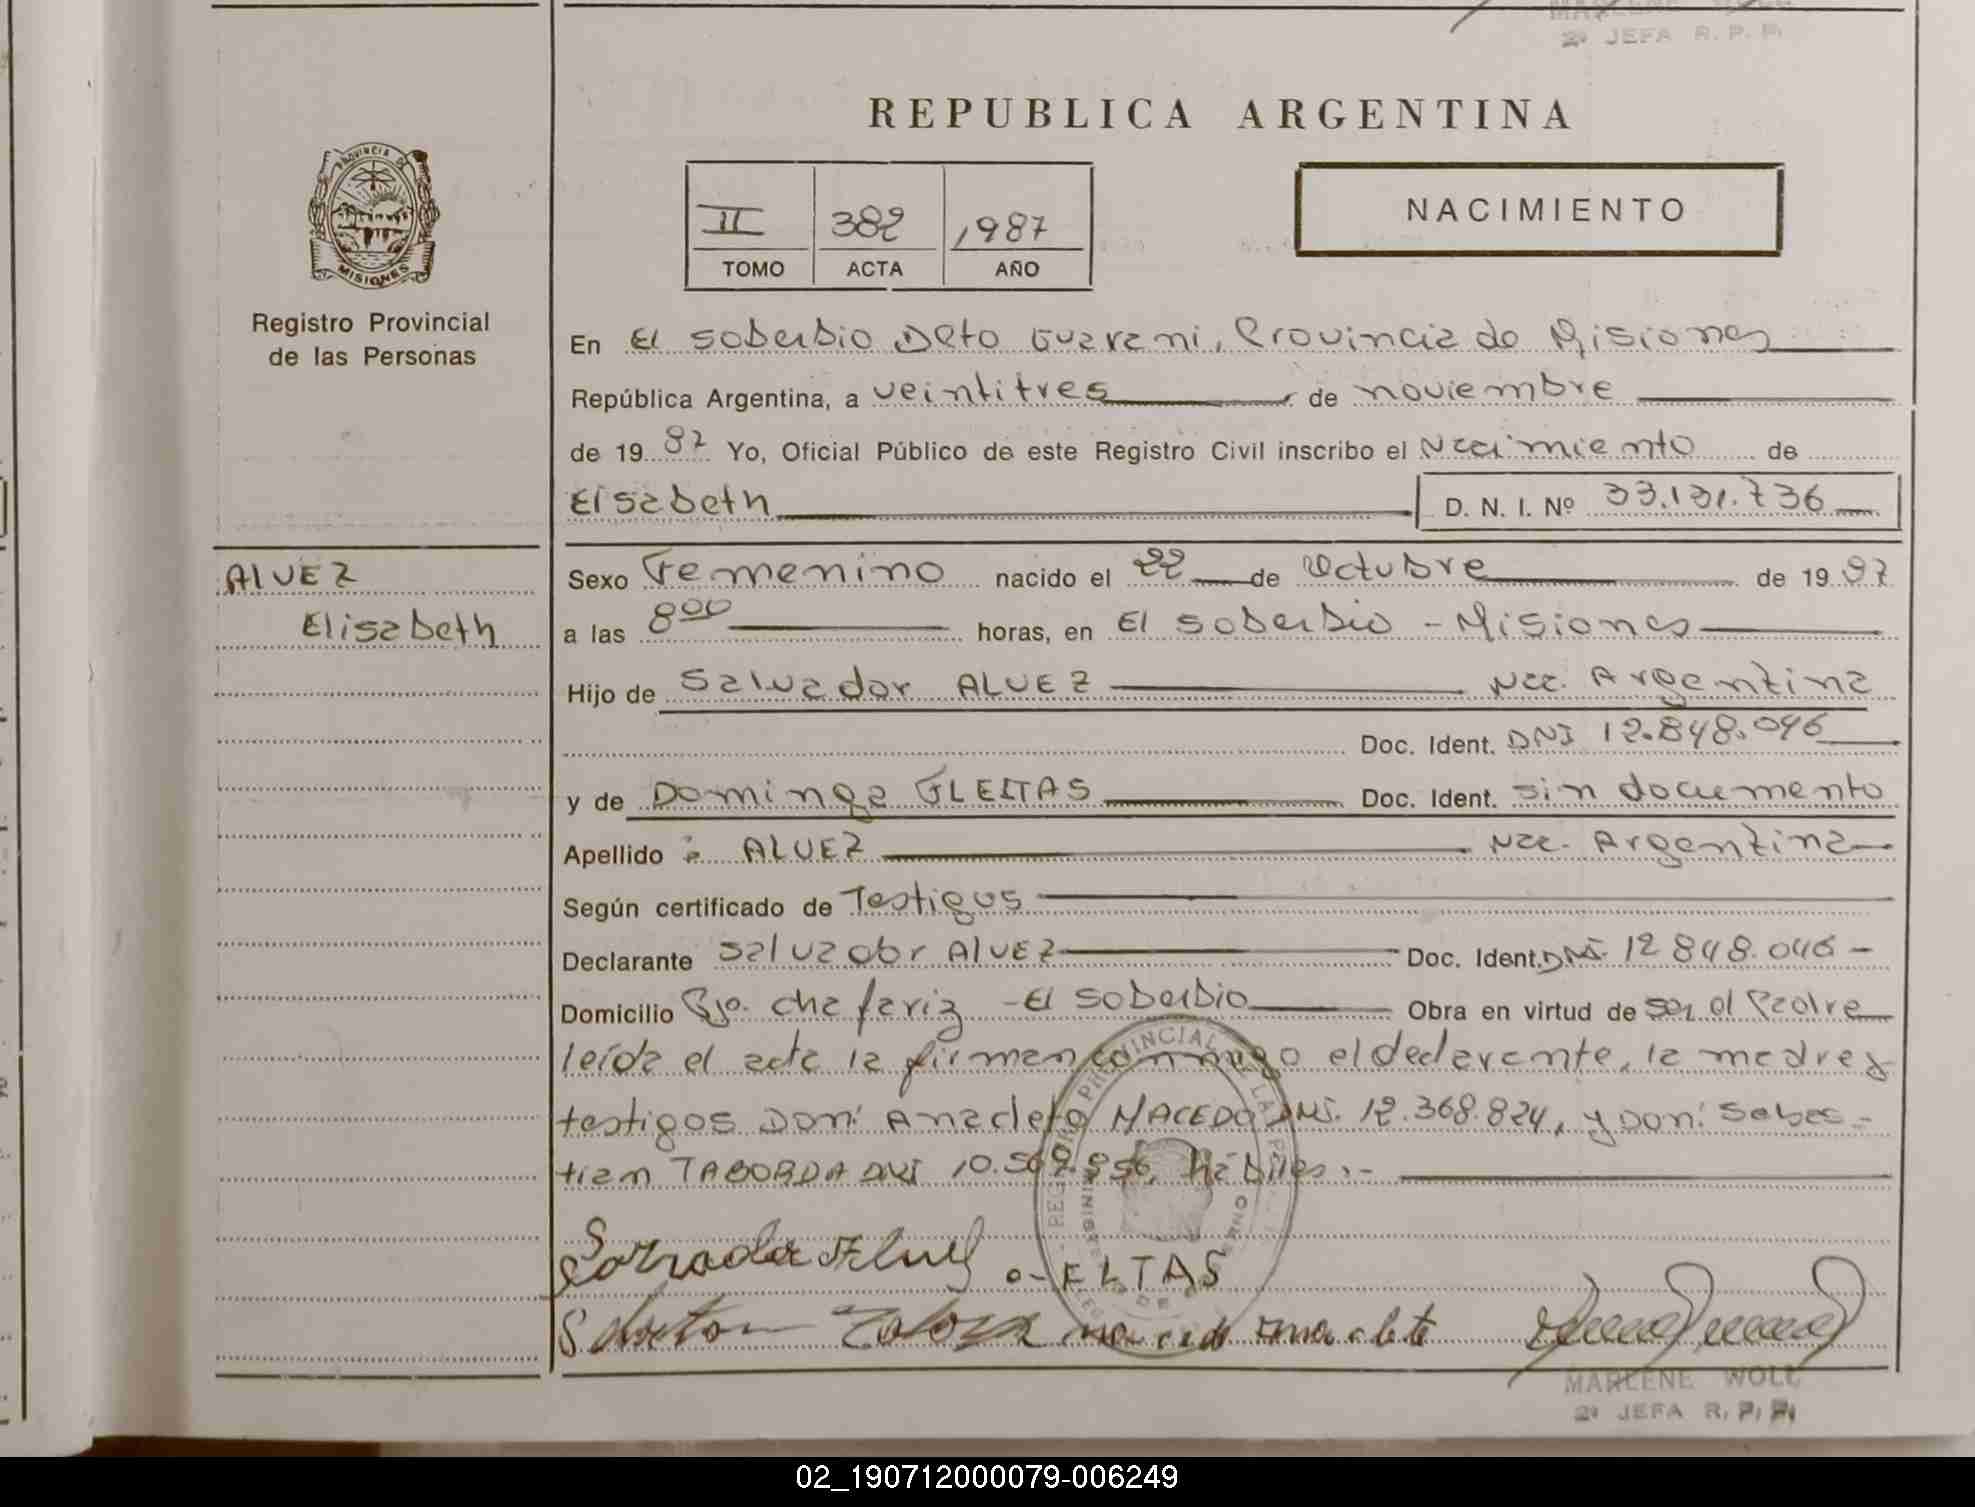 MARLENE WOLL
2ª JEFA R. P. P.
REPUBLICA ARGENTINA
PROVINCIA DE MISIONES
II 382 1987
TOMO ACTA AÑO
NACIMIENTO
Registro Provincial
de las Personas
En El Soberbio Dpto Guarani, Provincia de Misiones
República Argentina, a veintitres de noviembre
de 19 87 Yo, Oficial Público de este Registro Civil inscribo el Nacimiento de
Elisabeth D. N. I. Nº 33.131.736
ALVEZ
Elisabeth
Sexo Femenino nacido el 22 de Octubre de 19 87
a las 8 00 horas, en El Soberbio - Misiones
Hijo de Salvador ALVEZ Nac. Argentina
Doc. Ident. DNI 12.848.046
y de Dominga FLEITAS Doc. Ident. sin documento
Apellido : ALVEZ Nac. Argentina
Según certificado de Testigos
Declarante Salvador Alvez Doc. Ident. DNI. 12 848.046 -
Domicilio Bjo. chafariz - El Soberbio Obra en virtud de ser el Padre
leída el acta la firman conmigo el declarante, la madre y
testigos Don: Anacleto MACEDO DNI. 12.368.824, y Don: Sabas-
tian TABORDA DNI 10.569.856, Hábiles.-
REGISTRO PROVINCIAL DE LAS PERSONAS
ELTAS
macedo anacleto
MARLENE WOLL
2ª JEFA R. P. P.
02_190712000079-006249